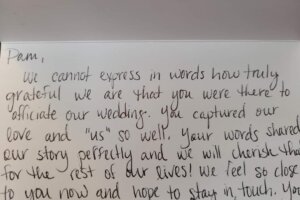 Pam,
We cannot express in words how truly
grateful we are that you were there to
officiate our wedding. You captured our
love and "us" so well. Your words shared
our story perfectly and we will cherish that
for the rest of our lives! We feel so close
to you now and hope to stay in touch. You